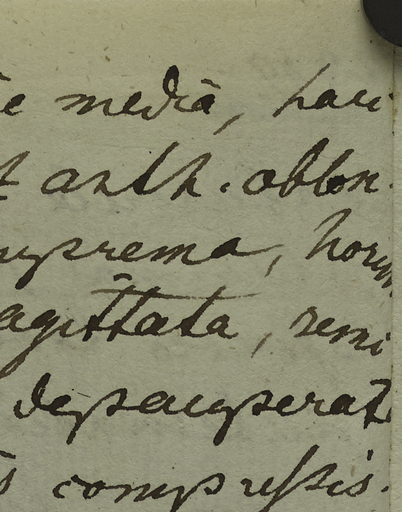 media, hau
anth. oblon
suprema, horum
agittata, remi
depauperat
compressis.